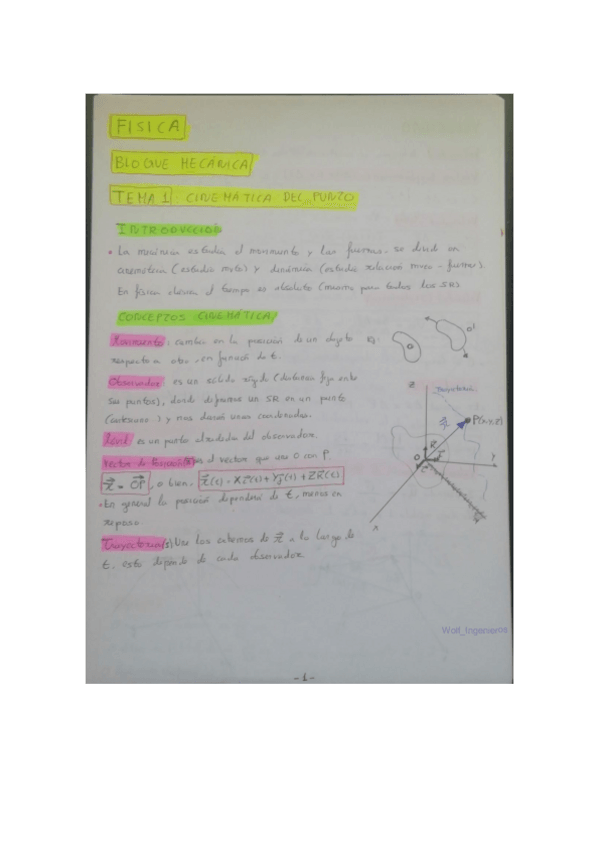 FISICA
BLOQUE MECÁNICA
TEMA 1: CINEMÁTICA DEL PUNTO
INTRODUCCIÓN
• La mecánica estudia el movimiento y las fuerzas. se divide en
cinemática (estudia mvto) y dinámica (estudia relación mvto - fuerzas).
En física clásica el tiempo es absoluto (mismo para todos los SR)
CONCEPTOS CINEMÁTICA
Movimiento: cambio en la posición de un objeto
respecto a otro, en función de t.
O
O'
Observador: es un sólido rígido (distancia fija entre
sus puntos), donde definimos un SR en un punto
(cartesiano) y nos dará unas coordenadas.
es un punto alrededor del observador.
Vector de posición es el vector que une O con P.
r = OP, o bien, r(t) = Xi(t) + Yj(t) + ZK(t)
• En general la posición dependerá de t, menos en
reposo
Trayectoria: Une los extremos de r a lo largo de
t, esto depende de cada observador.
Z
Trayectoria
P(x,y,z)
r
K
O
Y
X
Wolf_Ingenieros
-1-